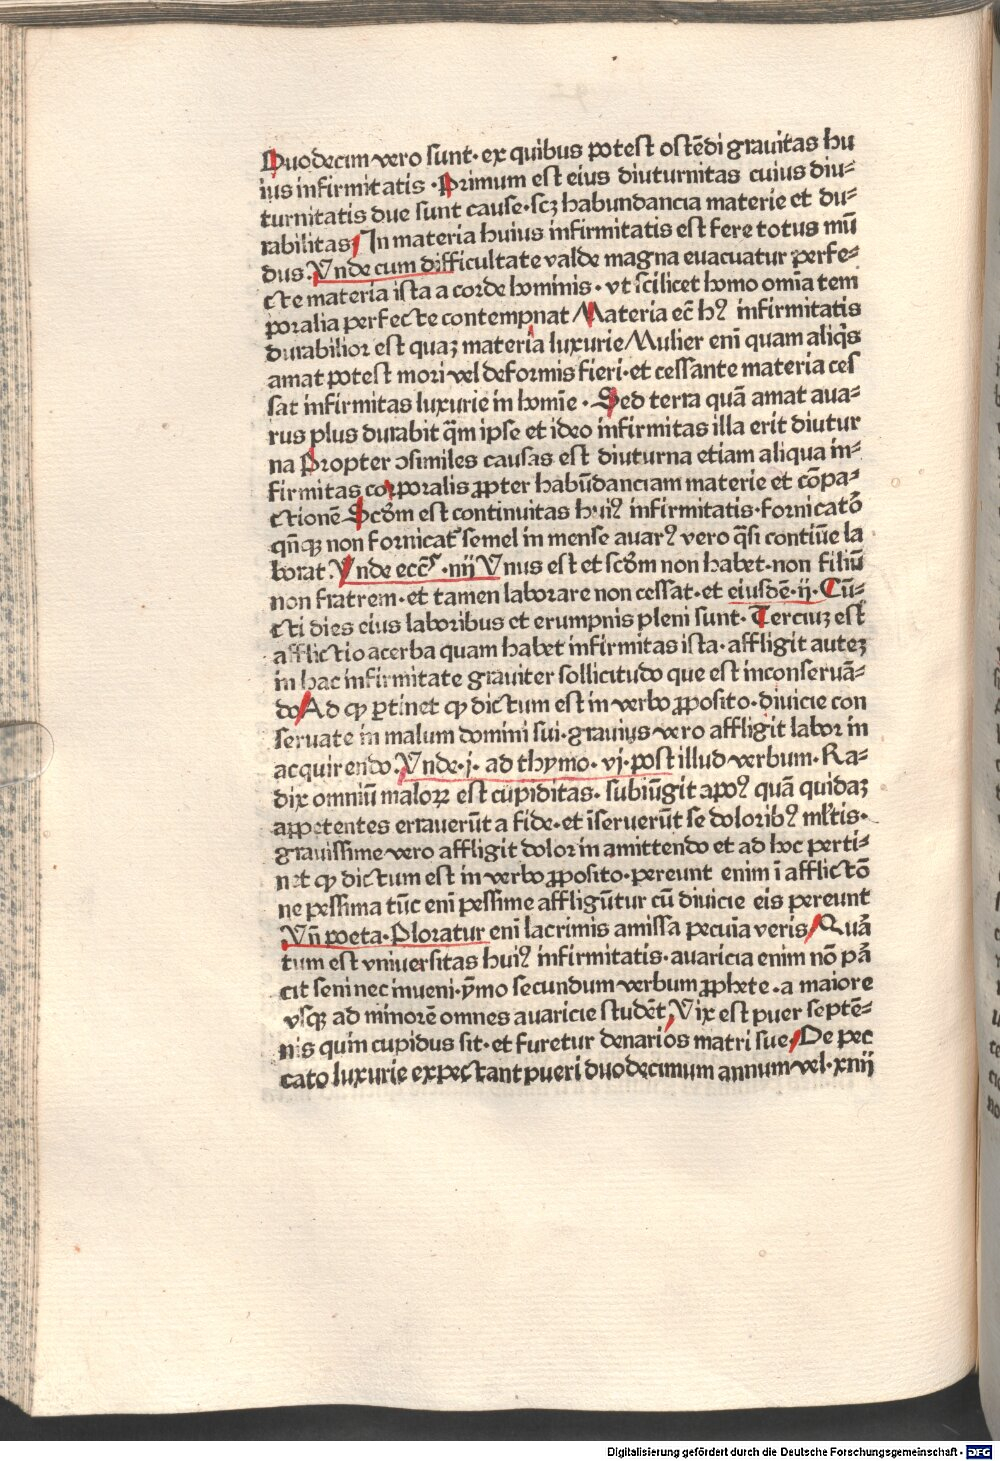 Duodecim vero sunt· ex quibus potest ostēdi grauitas hu
ius infirmitatis ·Primum est eius diuturnitas cuius diu⸗
turnitatis due sunt cause·scꝫ habundancia materie et du⸗
rabilitas/ In materia huius infirmitatis est fere totus mū
dus·Vnde cum difficultate valde magna euacuatur perfe⸗
cte materia ista a corde hominis· vt scilicet homo omīa tem
poralia perfecte contempnat Materia ec̄ hꝰ infirmitatis
durabilior est quaꝫ materia luxurie Mulier enī quam aliq̄s
amat potest mori vel deformis fieri·et cessante materia ces
sat infirmitas luxurie in homīe ·Sed terra quā amat aua⸗
rus plus durabit q̄m ipse et ideo infirmitas illa erit diutur
na Propter ↄsimiles causas est diuturna etiam aliqua in⸗
firmitas corporalis ꝓpter habūdanciam materie et cōpa⸗
ctionē Scd̄m est continuitas huiꝰ infirmitatis·fornicatō
qn̄qꝫ non fornicat᷑ semel in mense auarꝰ vero q̄si contiūe la
borat·Vnde ecc̄s·iiij Vnus est et scd̄m non habet·non filiū
non fratrem·et tamen laborare non cessat·et eiusdē·ij·Cū⸗
cti dies eius laboribus et erumpnis pleni sunt·Terciuꝫ est
afflictio acerba quam habet infirmitas ista·affligit auteꝫ
in hac infirmitate grauiter sollicitudo que est inconseruā⸗
do/Ad qꝫ ꝑtinet qꝫ dictum est in verbo ꝓposito·diuicie con
seruate in malum domini sui·grauius vero affligit labor in
acquirendo·Vnde·j· ad thymo· vj·post illud verbum·Ra⸗
dix omniū maloꝝ est cupiditas· subiūgit apoꝰ quā quidaꝫ
appetentes errauerūt a fide·et īseruerūt se doloribꝰ ml̄tis·
grauissime vero affligit dolor in amittendo et ad hoc perti⸗
net qꝫ dictum est in verbo ꝓposito·pereunt enim ī afflictō
ne pessima tūc enī pessime affligūtur cū diuicie eis pereunt
Vn̄ poeta·Ploratur enī lacrimis amissa pecuīa veris/Quā
tum est vniuersitas huiꝰ infirmitatis·auaricia enim nō pā
cit seni nec iuueni·ȳmo secundum verbum ꝓphete·a maiore
vsqꝫ ad minorē omnes auaricie studēt/Vix est puer septē⸗
nis quin cupidus sit·et furetur denarios matri sue/De pec
cato luxurie expectant pueri duodecimum annum vel·xiiij
Digitalisierung gefördert durch die Deutsche Forschungsgemeinschaft · DFG